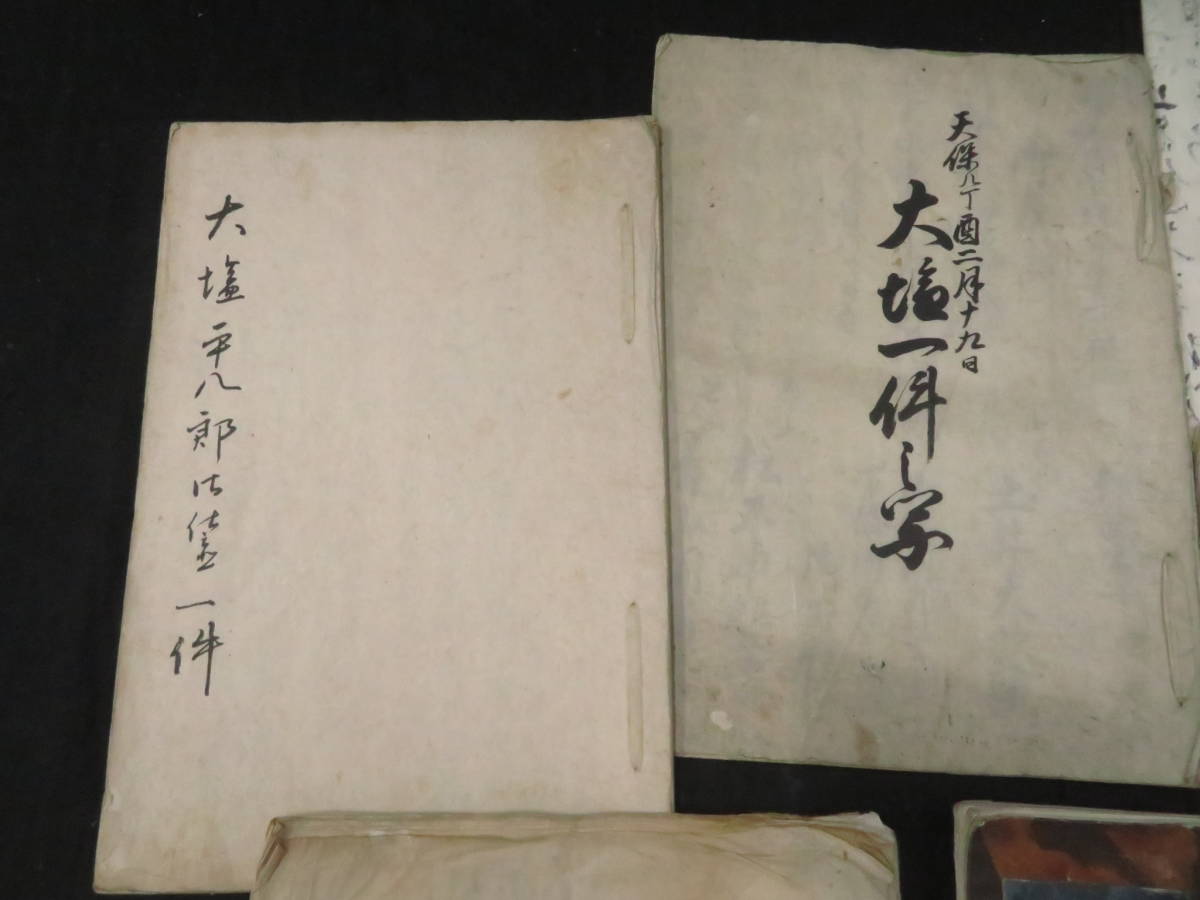 天保八丁酉二月十九日
大塩一件之写
大塩平八郎 一件